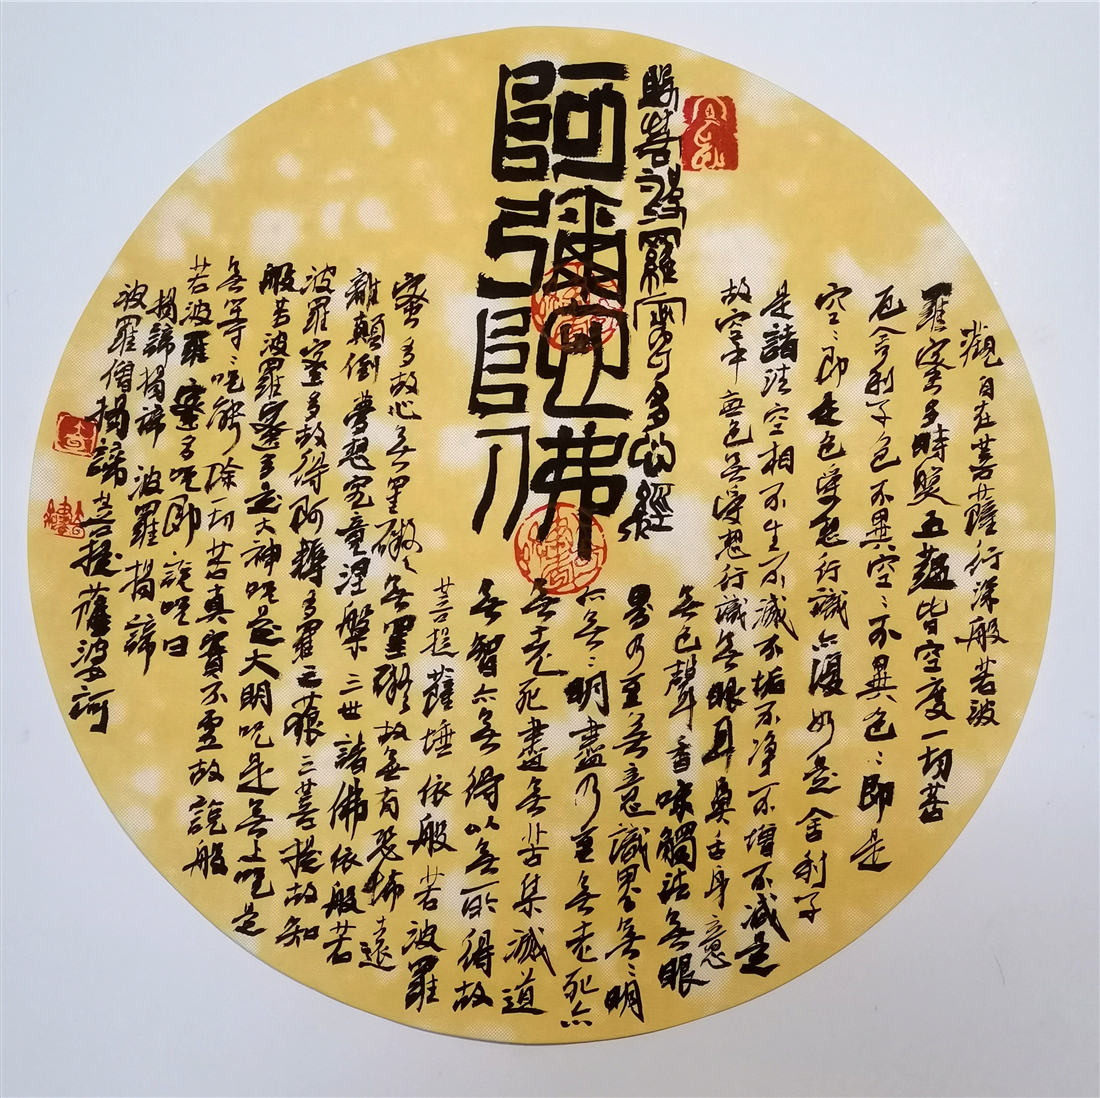 觀自在菩薩行深般若波
羅蜜多時照五蘊皆空度一切苦
厄舍利子色不異空〻不異色〻即是
空〻即是色受想行識亦復如是舍利子
是諸法空相不生不滅不垢不净不增不减是
故空中無色無受想行識無眼耳鼻舌身意
般若波羅蜜多心經
阿彌陀佛
無色聲香味觸法無眼
界乃至無意識界無〻明
亦無〻明盡乃至無老死亦
無老死盡無苦集滅道
無智亦無得以無所得故
菩提薩埵依般若波羅
蜜多故心無罣礙〻無罣礙故無有恐怖遠
離顛倒夢想究竟涅槃三世諸佛依般若
波羅蜜多故得阿耨多羅三藐三菩提故知
般若波羅蜜多是大神咒是大明咒是無上咒是
無等〻咒能除一切苦真實不虛故說般
若波羅蜜多咒即說咒曰
揭諦揭諦波羅揭諦
波羅僧揭諦菩提薩婆訶